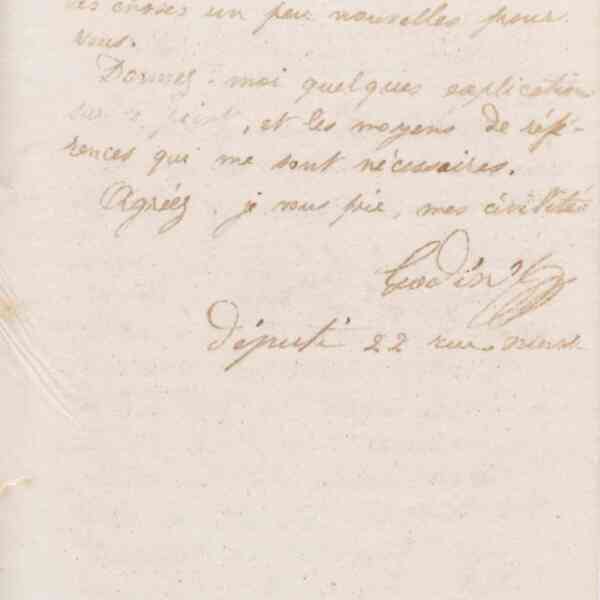 des choses un peu nouvelles pour
vous.
Donnez-moi quelques explication
sur ce point, et les moyens de réfé-
rences qui me sont nécessaires.
Agréez, je vous prie, mes civilités
Godin
Député 22 rue